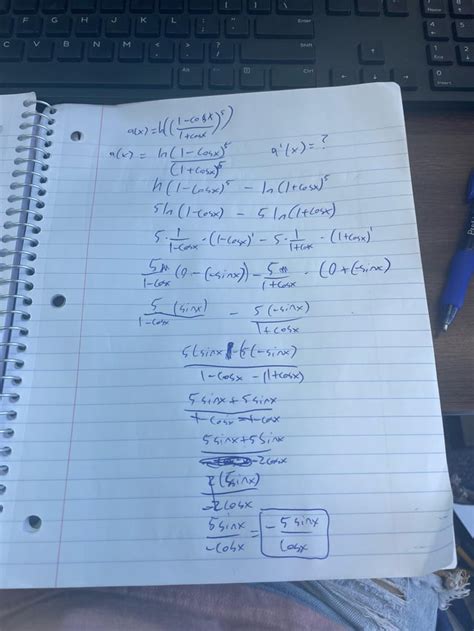 a(x) = ln((1-cosx/1+cosx)^5)
a(x) = ln(1-cosx)^5/(1+cosx)^5 a'(x) = ?
ln(1-cosx)^5 - ln(1+cosx)^5
5ln(1-cosx) - 5ln(1+cosx)
5·1/1-cosx·(1-cosx)' - 5·1/1+cosx·(1+cosx)'
5/1-cosx (0-(-sinx)) - 5/1+cosx · (0+(-sinx)
5(sinx)/1-cosx - 5(-sinx)/1+cosx
5(sinx)-5(-sinx)/1-cosx-(1+cosx)
5sinx+5sinx/1-cosx-1-cosx
5sinx+5sinx/-2cosx
2(5sinx)/-2cosx
5sinx/-cosx = -5sinx/cosx